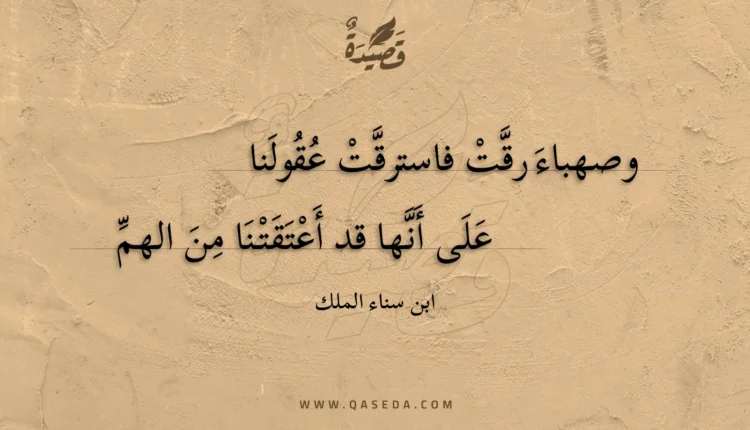 قَصِيْدَةٌ
وصهباءَ رقَّتْ فاسترقَّتْ عُقُولَنا
عَلَى أَنَّها قد أَعْتَقَتْنَا مِنَ الهمِّ
ابن سناء الملك
WWW.QASEDA.COM